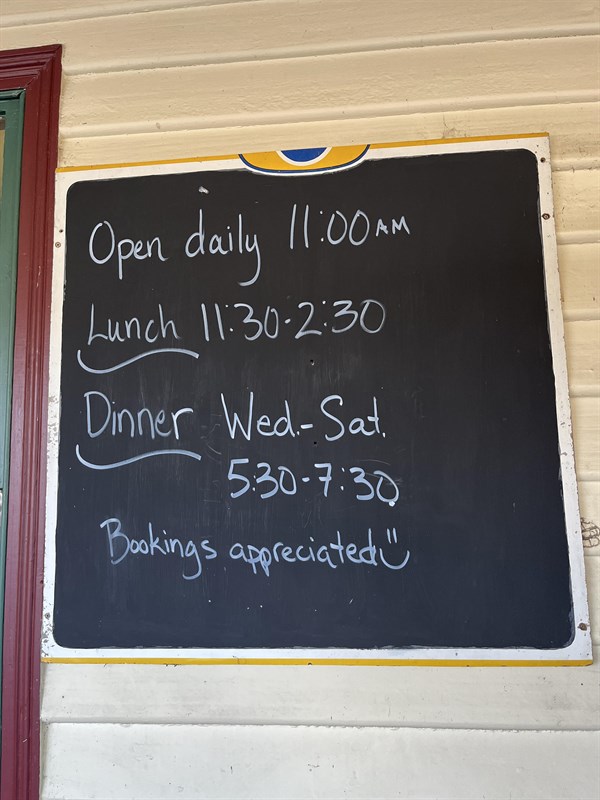 Open daily 11:00AM
Lunch 11:30-2:30
Dinner Wed.-Sat.
5:30-7:30
Bookings appreciated